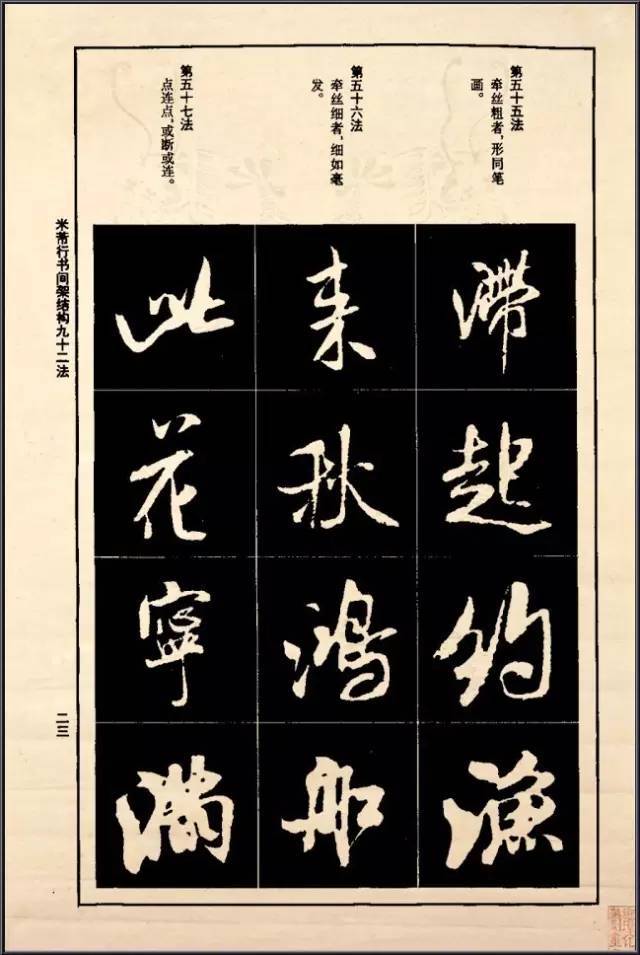 第五十五法
牵丝粗者，形同笔
画。
滯起約漁
第五十六法
牵丝细者，细如毫
发。
来秋鴻船
第五十七法
点连点，或断或连。
此花寧滿
米芾行书间架结构九十二法
二三